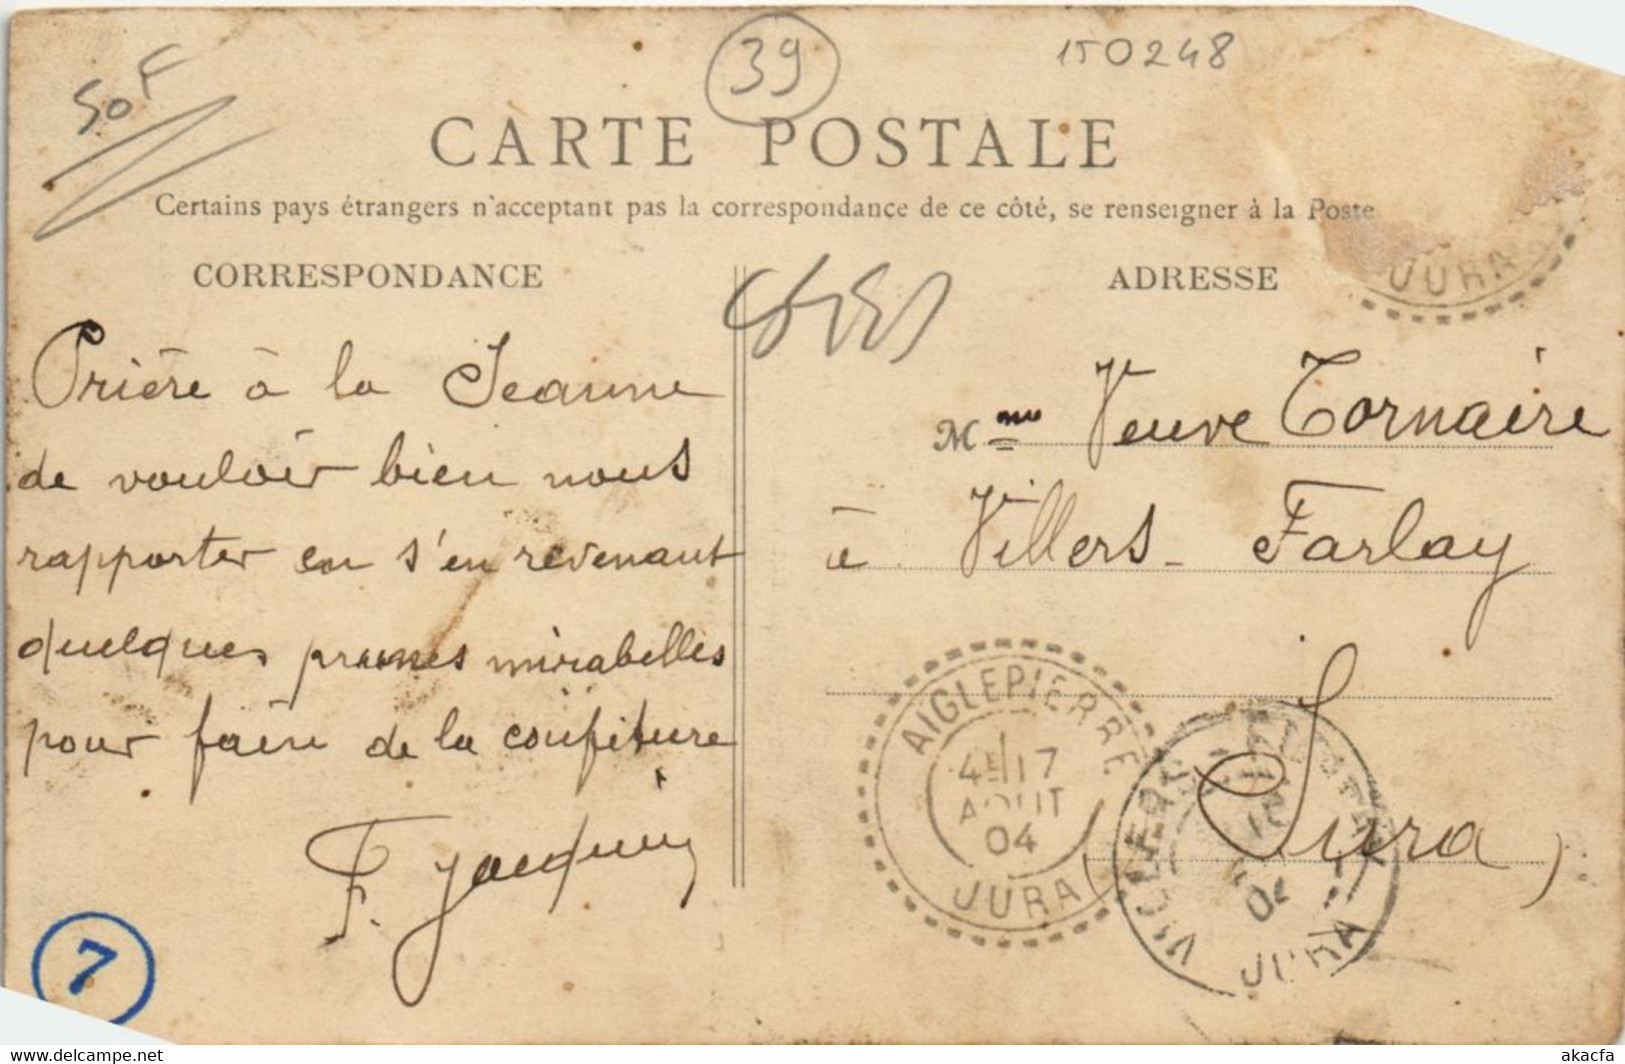 50F
39
150248
CARTE POSTALE
Certains pays étrangers n'acceptant pas la correspondance de ce côté, se renseigner à la Poste
CORRESPONDANCE
Prière à la Jeanne
de vouloir bien nous
rapporter en s'en revenant
quelques prunes mirabelles
pour faire de la confiture
F. Jacquin
7
ADRESSE
JURA
Mme Veuve Tornaire
à Villers-Farlay
Jura)
AIGLEPIERRE
4E 17
AOUT
04
JURA
VILLERS
04
JURA
www.delcampe.net
akacfa